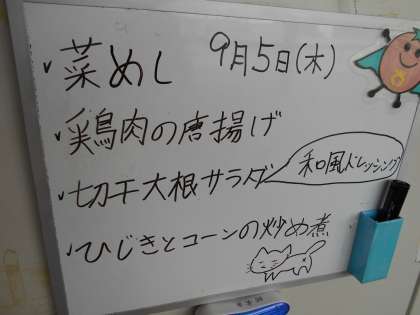 9月5日(木)
・菜めし
・鶏肉の唐揚げ
・切干大根サラダ
和風ドレッシング
・ひじきとコーンの炒め煮